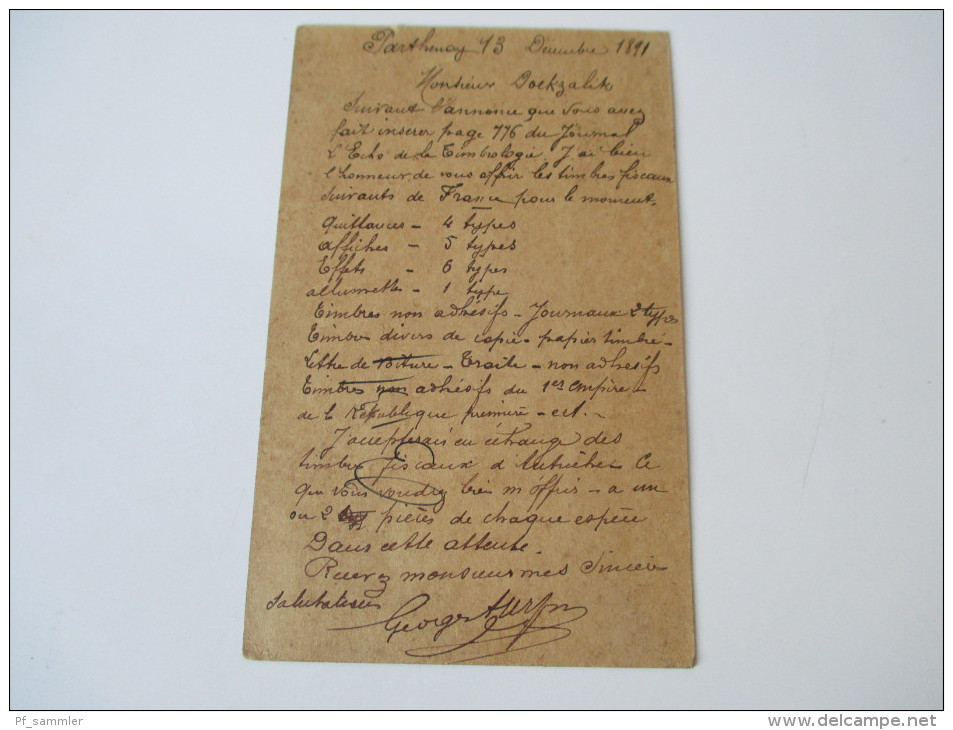 Parthenay 13 Décembre 1891
Monsieur
Suivant l'annonce que vous avez
fait inserer page 776 du Journal
L'Echo de la Timbrologie, J'ai bien
l'honneur de vous offrir les timbres fiscaux
suivants de France pour le moment.
Quittances - 4 types
affiches - 5 types
Effets - 6 types
allumettes - 1 type
Timbres non adhésifs - Journaux 2 types
Timbres divers de copie - papier timbré -
Lettre de voiture - Traite - non adhésifs
Timbres non adhésifs du 1er empire
de la République première - ect. -
J'accepterais en échange des
timbres fiscaux d'Autriche Ce
que vous voudrez bien m'offrir - a un
ou 2 pièces de chaque espèce
Dans cette attente.
Recevez monsieur mes Sincères
Salutations
Georges
Pf_sammler
http://www.delcampe.net